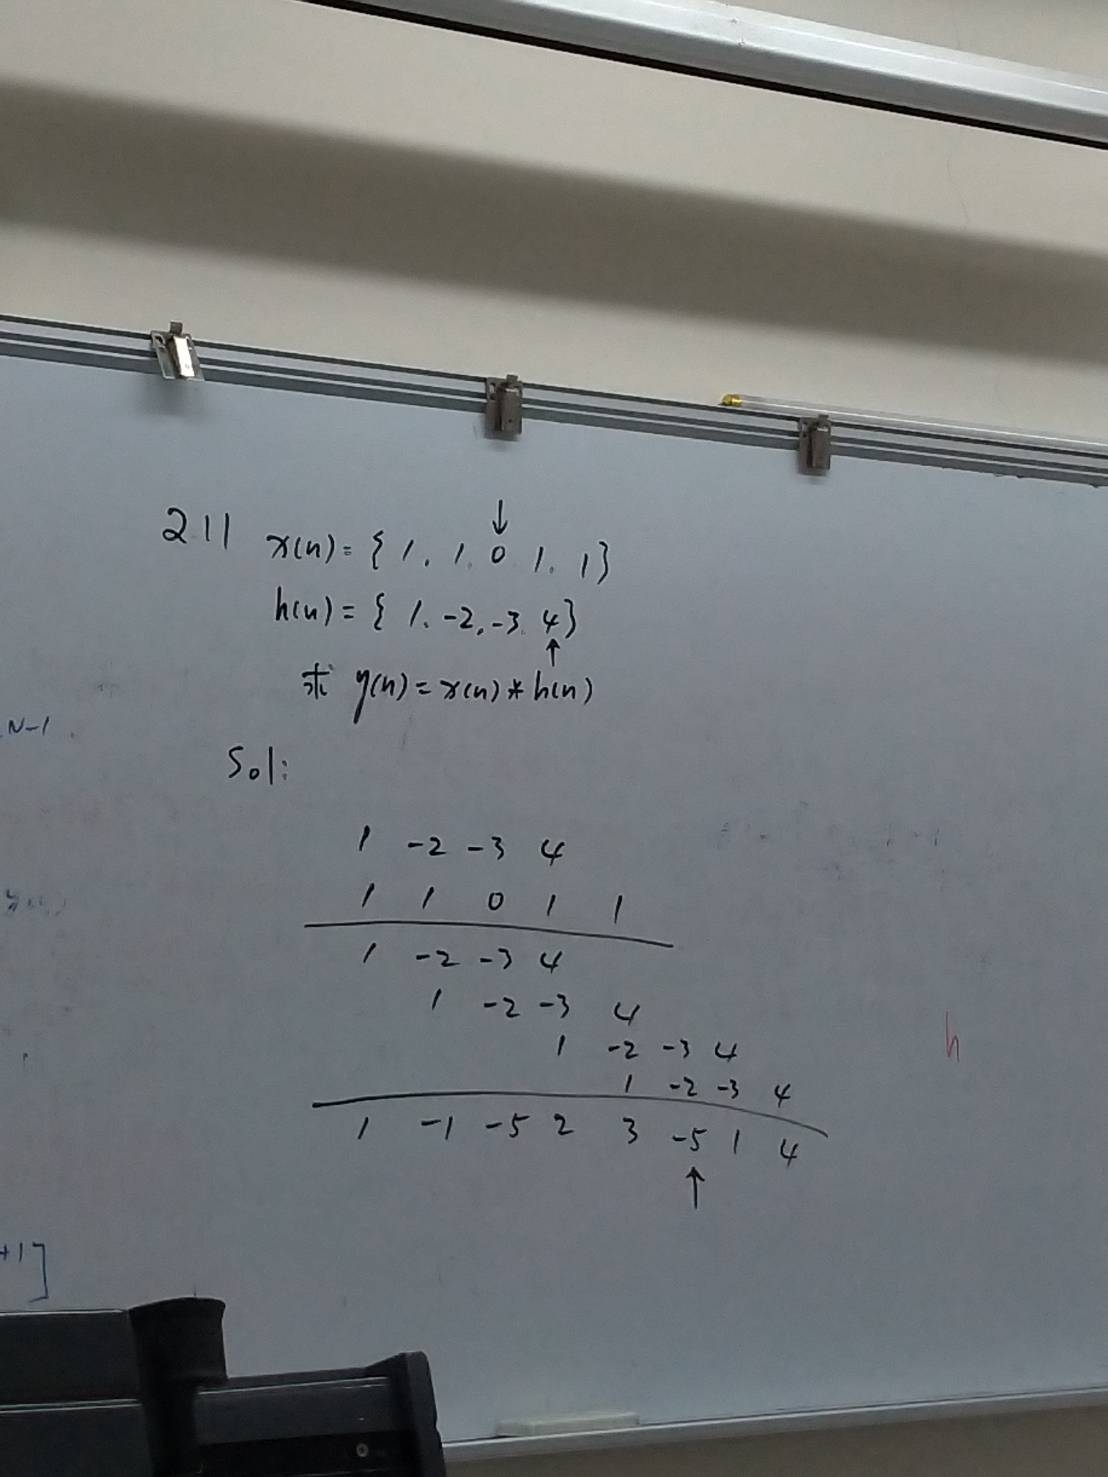 N-1
+1]
211 x(n) = { 1, 1, 0, 1, 1}
↓
h(n) = { 1, -2, -3, 4}
↑
求 y(n) = x(n) * h(n)
Sol:
1 -2 -3 4
1 1 0 1 1
1 -2 -3 4
1 -2 -3 4
1 -2 -3 4
1 -2 -3 4
1 -1 -5 2 3 -5 1 4
↑
h